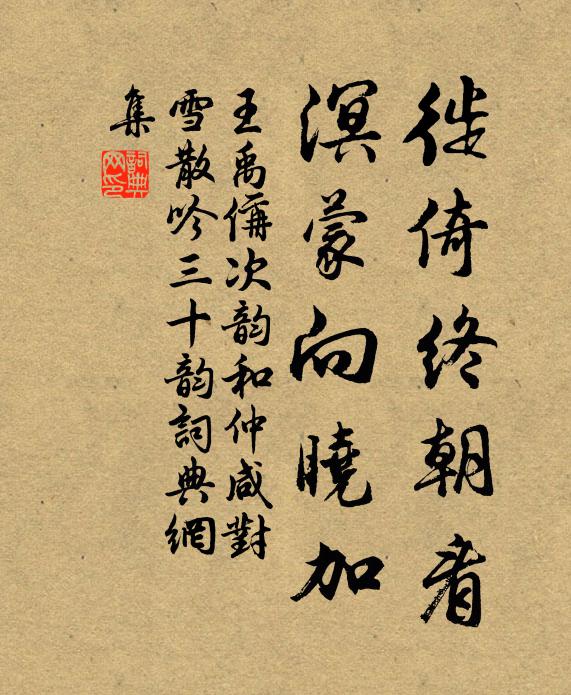 徙倚終朝看
溟蒙向曉加
王禹偁次韵和仲咸對
雪散吟三十韵詞典網
集
詞典
网印